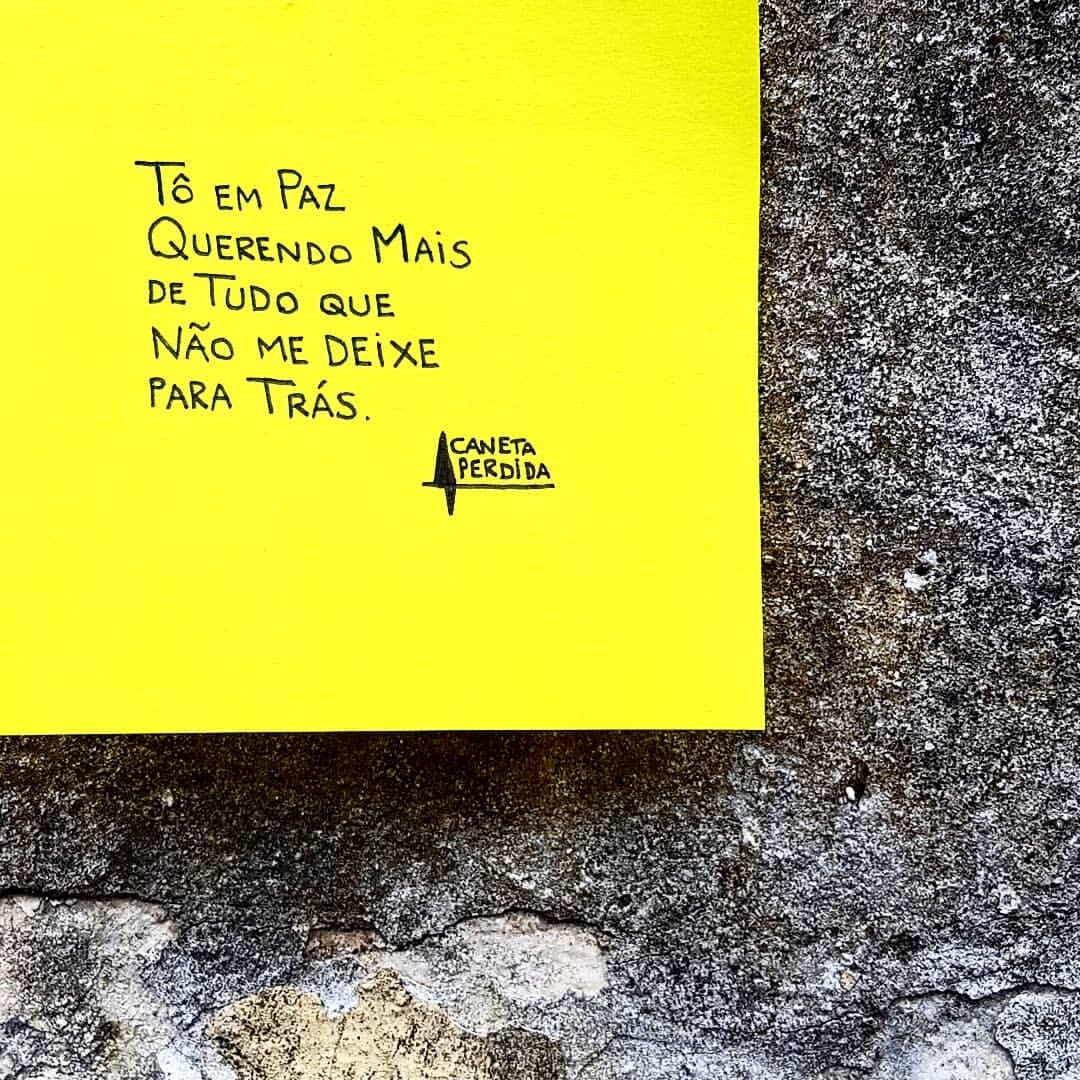 Tô em Paz
Querendo Mais
de Tudo que
não me deixe
para Trás.
CANETA
PERDIDA